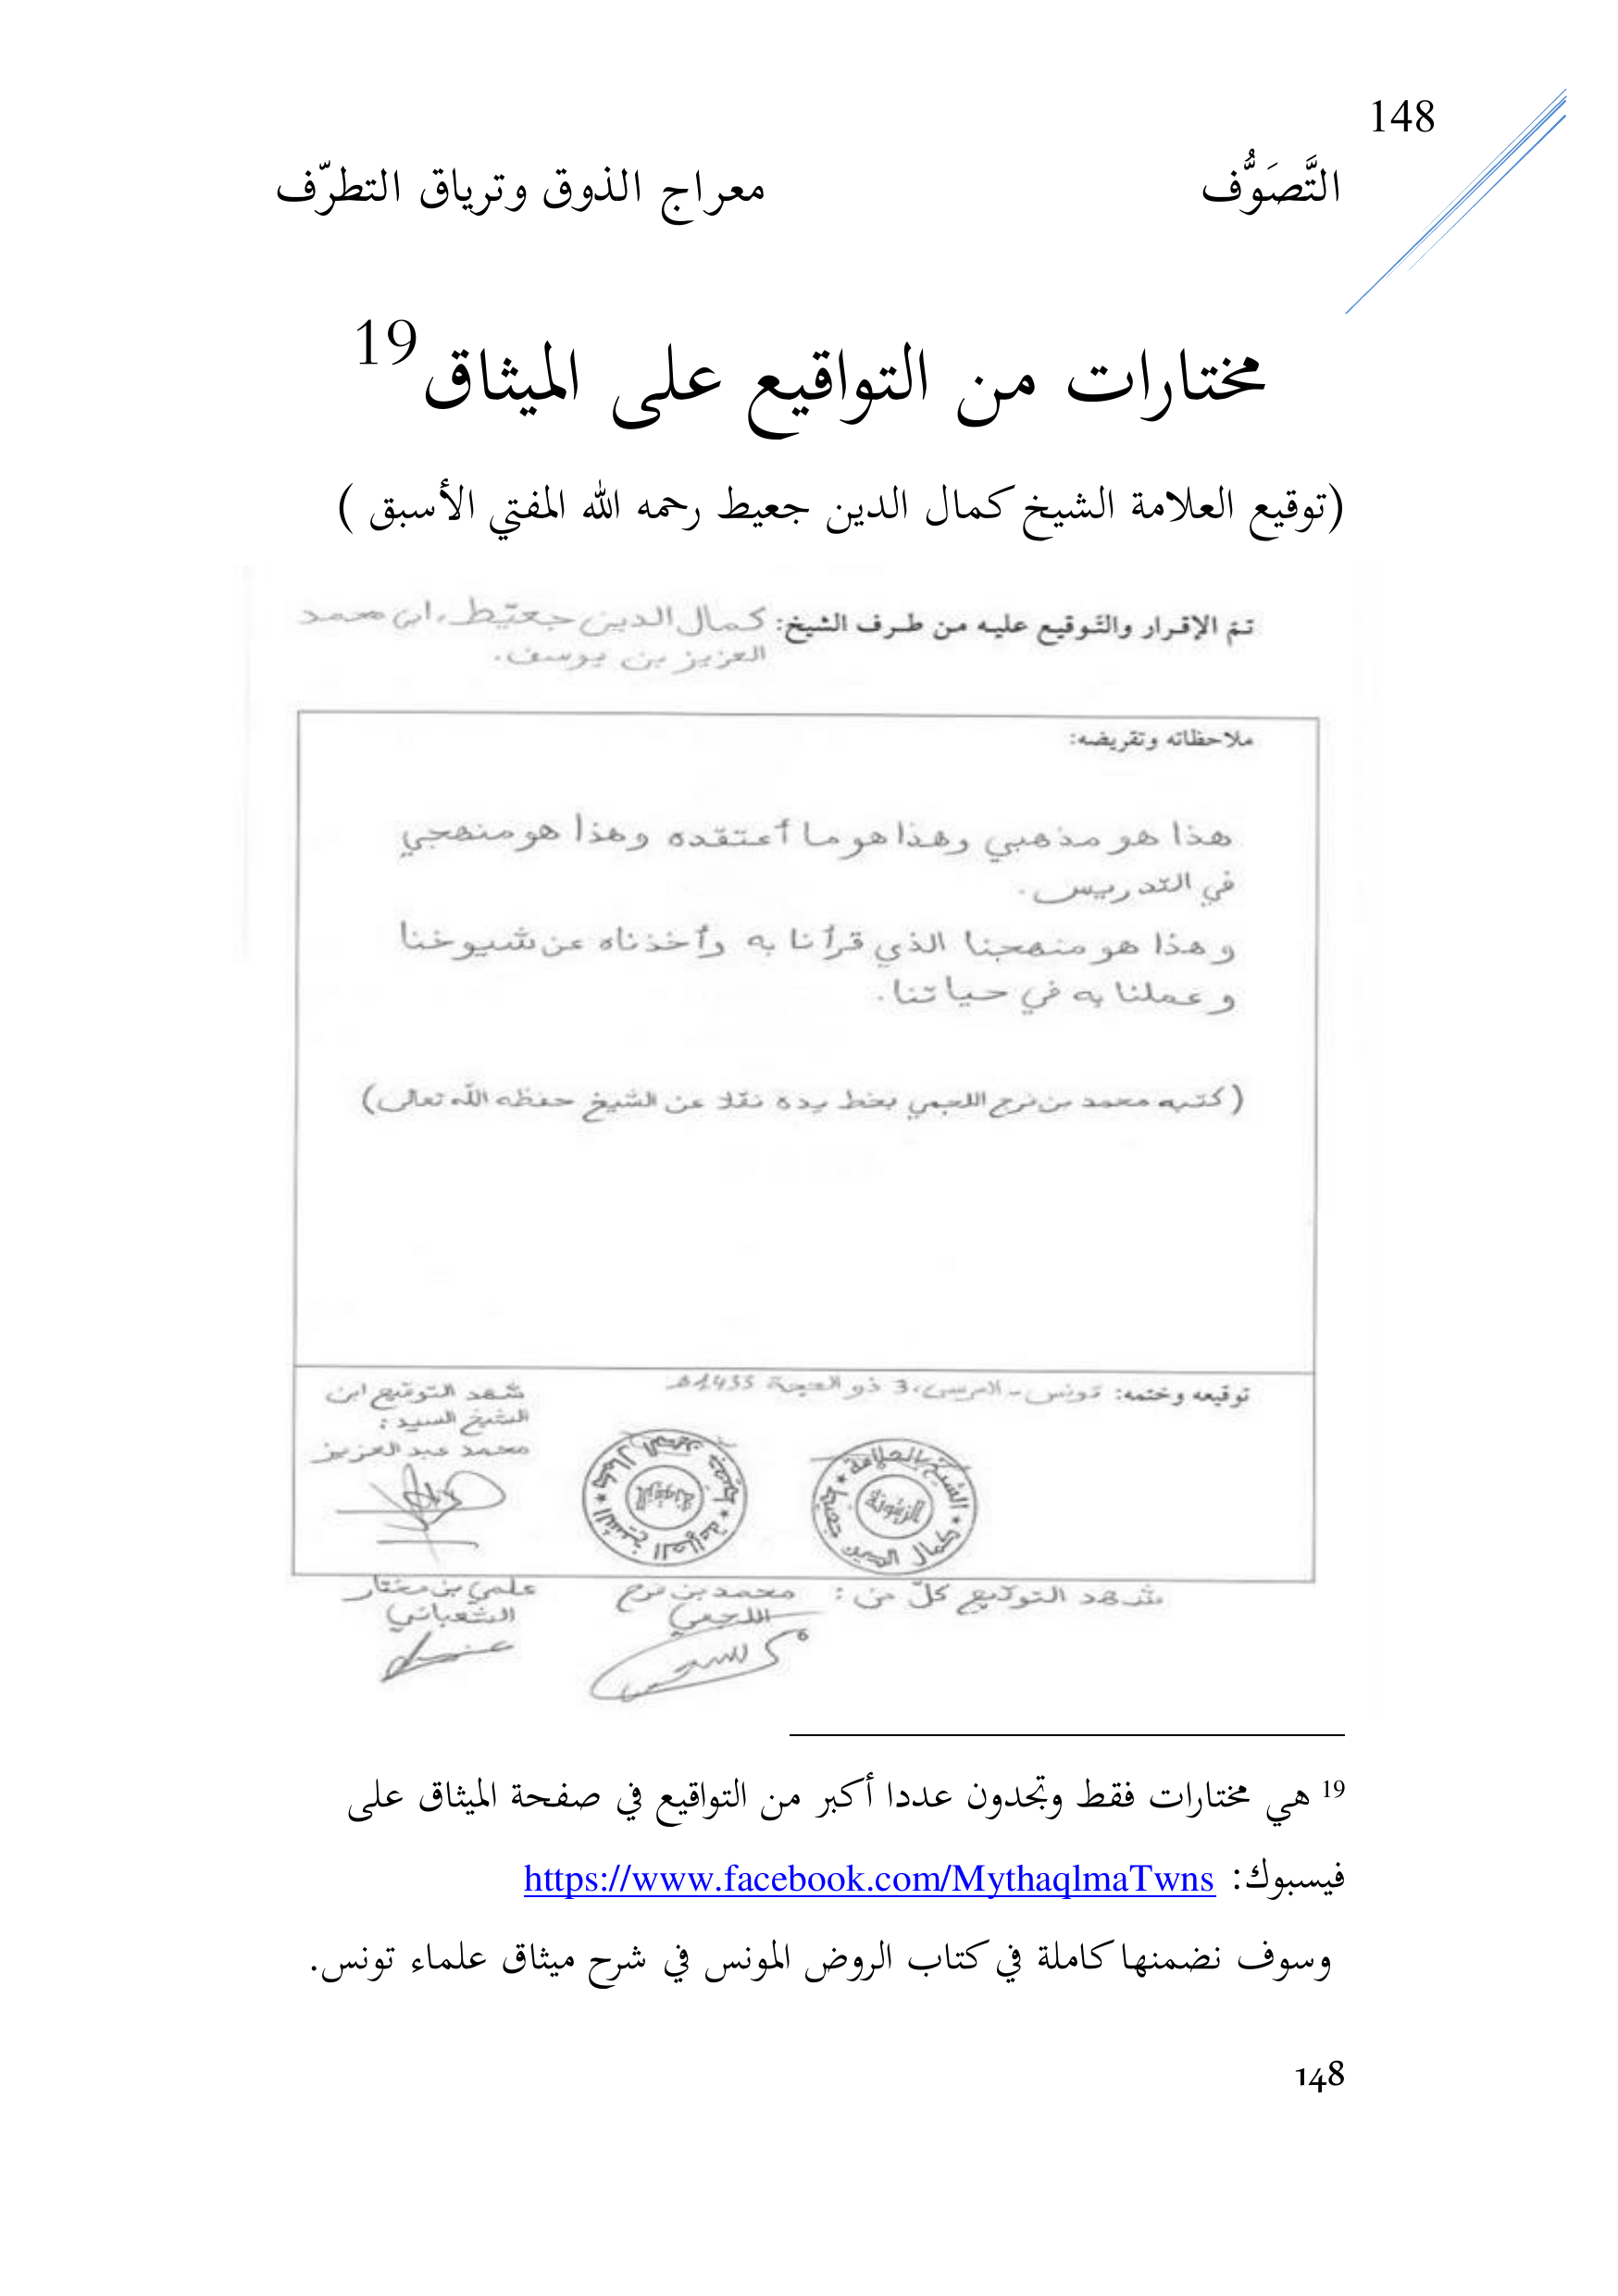 148
التَّصَوُّف معراج الذوق وترياق التطرّف
مختارات من التواقيع على الميثاق19
(توقيع العلامة الشيخ كمال الدين جعيط رحمه الله المفتي الأسبق )
تمّ الإقرار والتّوقيع عليه من طرف الشيخ: كمال الدين جعيّط، ابن محمد
العزيز بن يوسف.
ملاحظاته وتقريضه:
هذا هو مذهبي وهذا هو ما أعتقده وهذا هو منهجي
في التدريس.
وهذا هو منهجنا الذي قرأنا به وأخذناه عن شيوخنا
وعملنا به في حياتنا.
(كتبه محمد بن فرج اللجمي بخط يده نقلا عن الشيخ حفظه الله تعالى)
توقيعه وختمه: تونس - المرسى، 3 ذو الحجة 1433هـ
شهد التوقيع ابن
الشيخ السيد:
محمد عبد العزيز
الشيخ العلامة * كمال الدين جعيط *
الزيتونة
شهد التوقيع كلّ من: محمد بن فرج اللجمي
علمي بن مختار
الشعباني
19 هي مختارات فقط وتجدون عددا أكبر من التواقيع في صفحة الميثاق على
فيسبوك: https://www.facebook.com/MythaqlmaTwns
وسوف نضمنها كاملة في كتاب الروض المونس في شرح ميثاق علماء تونس.
148